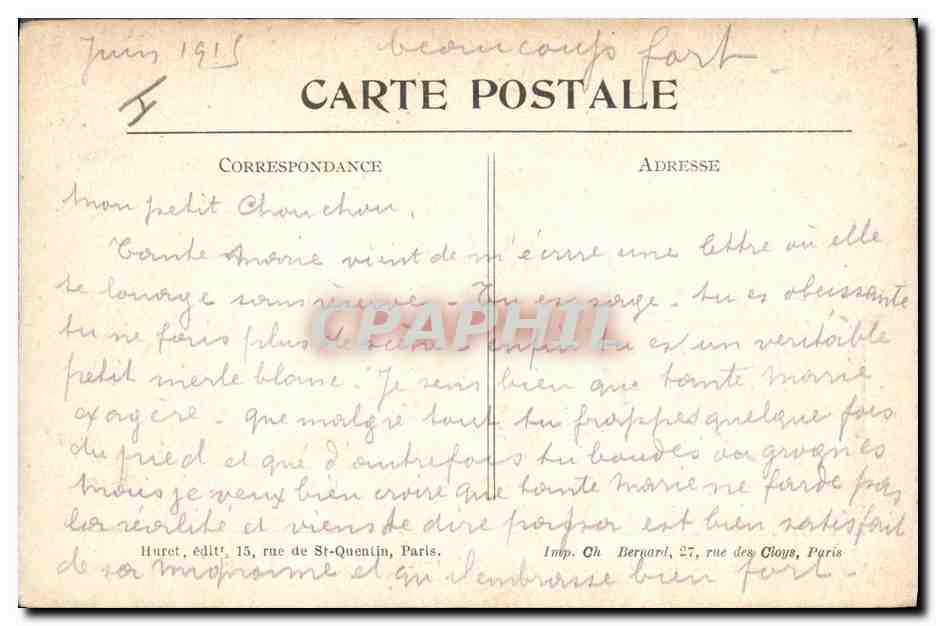 Juin 1915 beaucoups fort
CARTE POSTALE
CORRESPONDANCE ADRESSE
Mon petit Chouchou,
Tante Marie vient de m'écrire une lettre où elle
te louage sans réserve - Tu es sage - tu es obeissante
tu ne fais plus de scènes enfin tu es un veritable
petit merle blanc. Je sens bien que tante Marie
exagère - que malgré tout tu frappes quelque fois
du pied et que d'autrefois tu boudes ou grognes
Mais je veux bien croire que tante Marie ne farde pas
la réalité et viens te dire papa est bien satisfait
Huret, édit^r, 15, rue de St-Quentin, Paris. Imp. Ch Bernard, 27, rue des Cloys, Paris
de sa mignonne et qu'il embrasse bien fort -
CPAPHIL